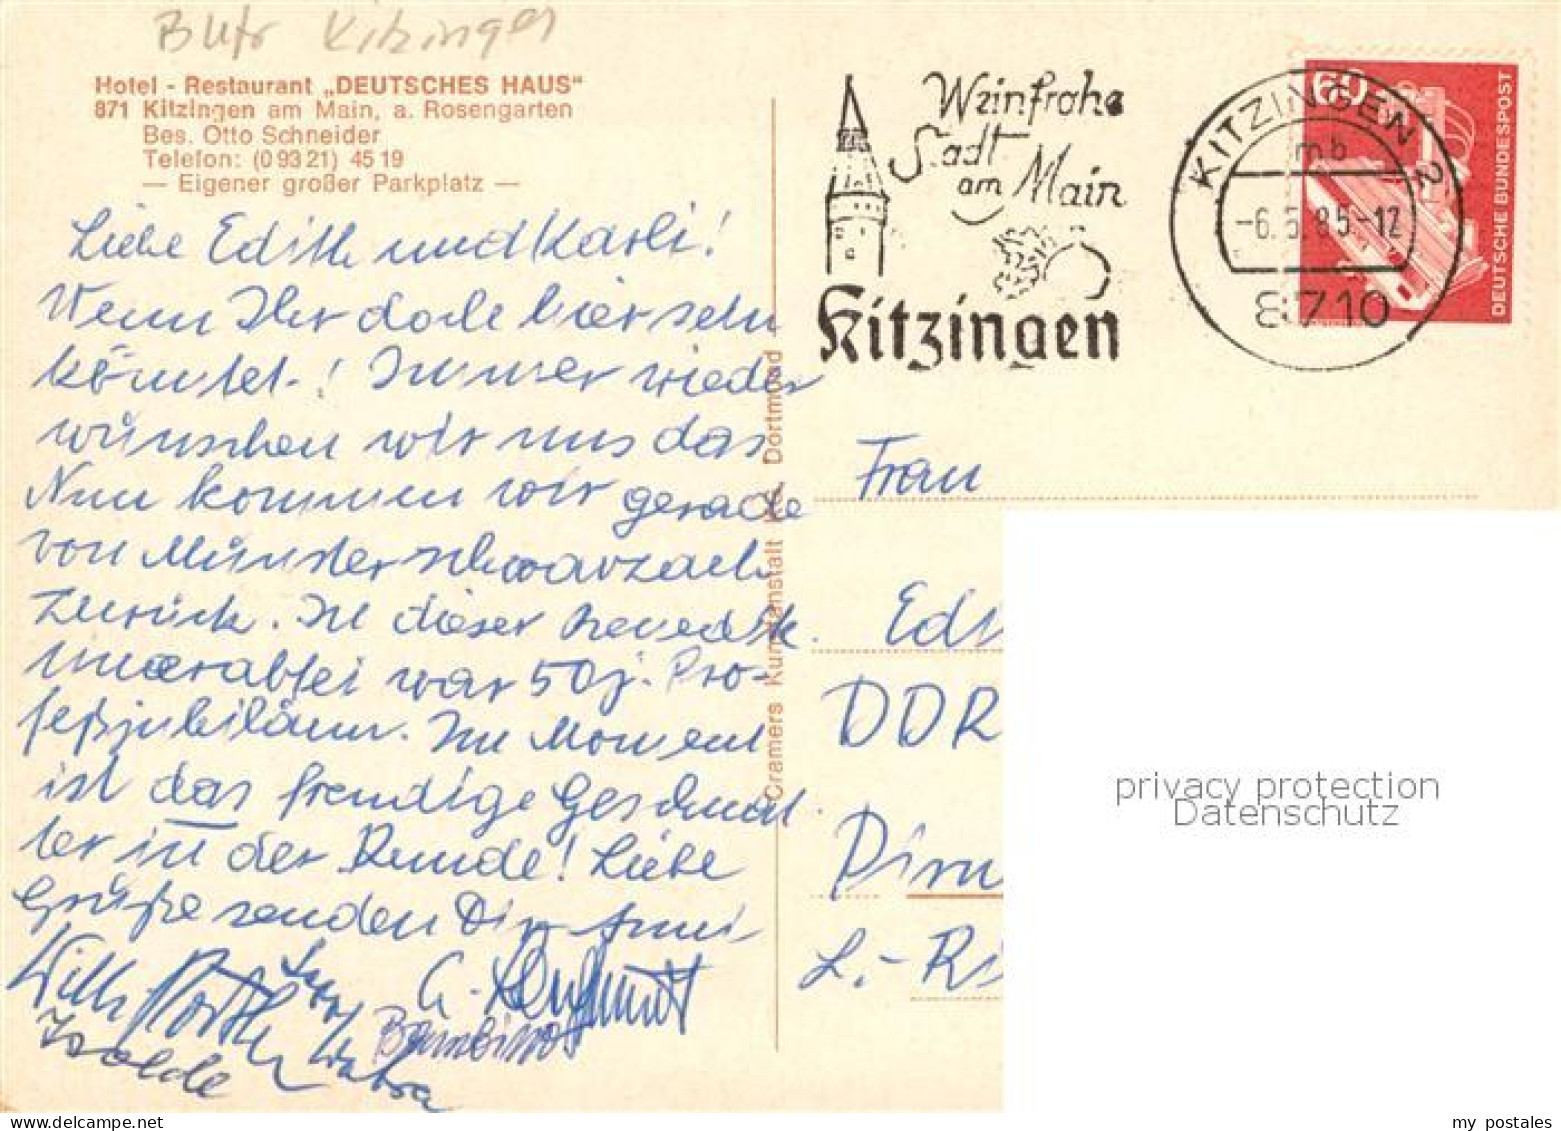 Kitzinger
Hotel - Restaurant „DEUTSCHES HAUS“
871 Kitzingen am Main, a. Rosengarten
Bes. Otto Schneider
Telefon: (0 93 21) 45 19
— Eigener großer Parkplatz —
Liebe Edith und Karli!
Wenn Ihr doch hier sein
könntet.! Immer wieder
wünschen wir uns das
Nun kommen wir gerade
von Münsterschwarzach
zurück. In dieser Benedik
tinerabtei war 50j. Pro-
feßjubiläum. Im Moment
ist das freudige Geschnat
ter in der Runde! Liebe
Grüße senden Dir Anni
Willi
Bambino
Isolde
Cramers Kunstanstalt KG, Dortmund
Weinfrohe
Stadt
am Main
Kitzingen
KITZINGEN 2
mb
-6.5.85-12
8710
60
DEUTSCHE BUNDESPOST
Frau
Edi
DDR
Pirn
L.-R
privacy protection
Datenschutz
my postales